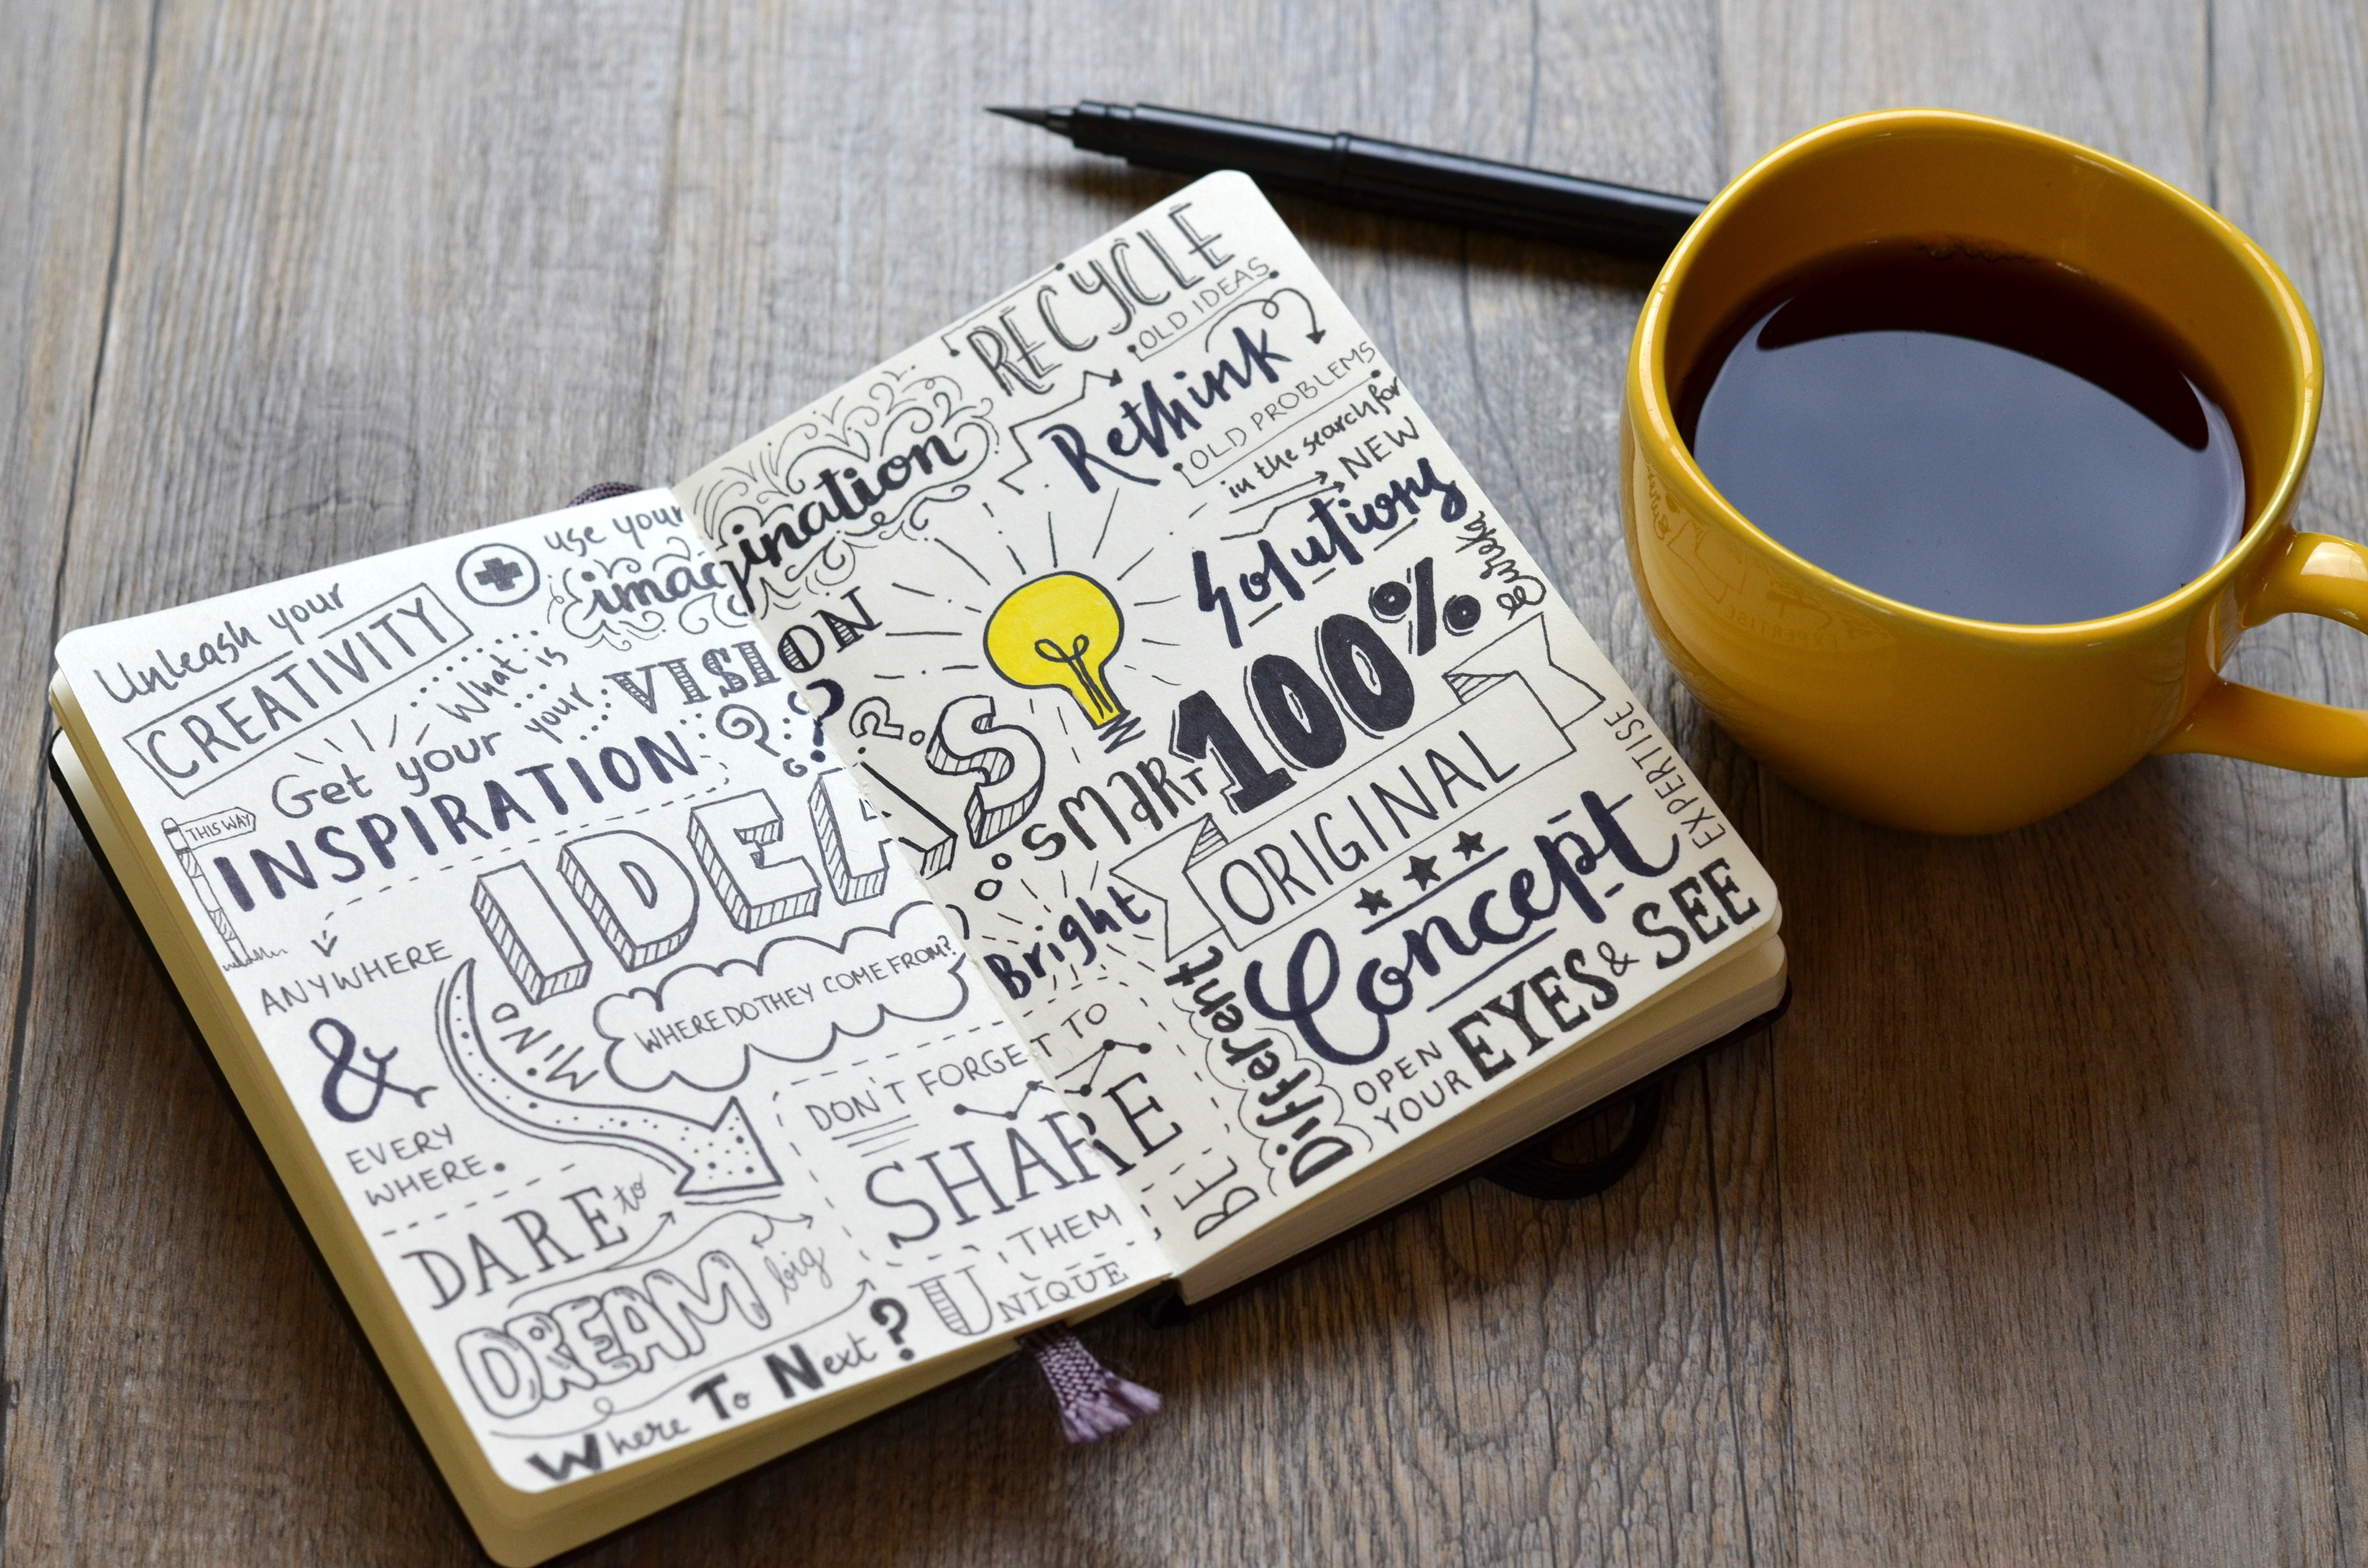 Unleash your
CREATIVITY
use your
imagination
What is
your
VISION
??
Get your
INSPIRATION
THIS WAY
ANYWHERE
&
EVERY
WHERE.
IDEAS
MIND
WHERE DO THEY COME FROM?
DON'T FORGET TO
SHARE
THEM
DARE to
DREAM big
UNIQUE
Where To Next?
RECYCLE
OLD IDEAS
Rethink
OLD PROBLEMS
in the search for
NEW
Solutions
eureka
?
SMART
100%
ORIGINAL
Bright
Concept
EXPERTISE
BE
Different
OPEN
YOUR
EYES & SEE